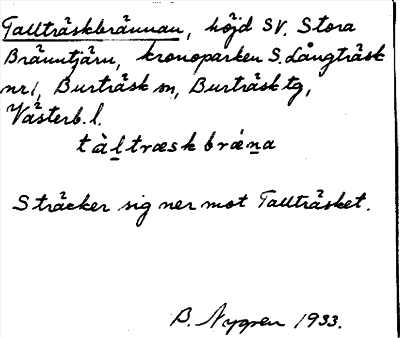 Tallträskbrännan, höjd SV. Stora
Bränntjärn, kronoparken S. Långträsk
nr 1, Burträsk sn, Burträsk tg,
Västerb. l.
tàl̲træskbrǽn̲a
Sträcker sig ner mot Tallträsket.
B. Nygren 1933.